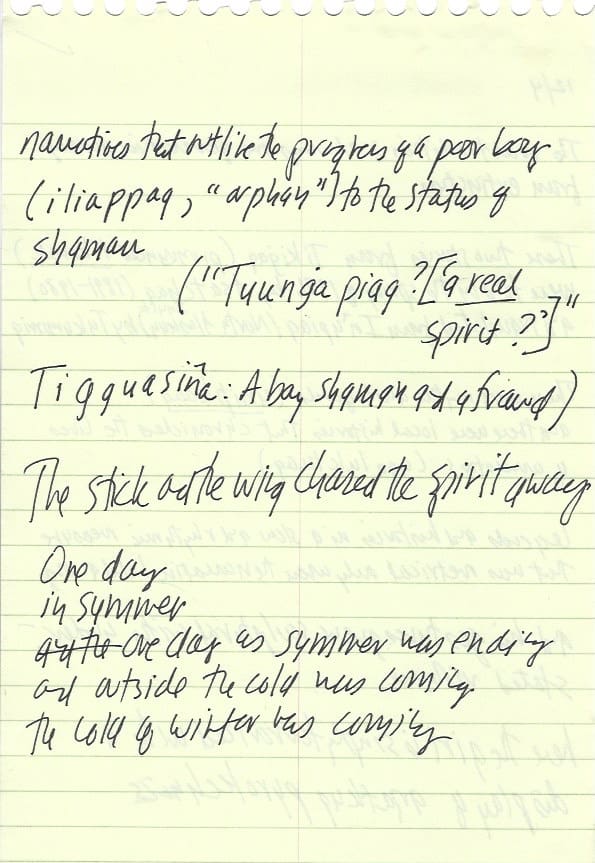 narratives that outline the progress of a poor boy
(iliappaq, "orphan") to the status of
shaman
("Tuunġa piaq? ["a real
spirit?"]"
Tigguasiña: A boy shaman and a friend)
The stick and the wing chased the spirit away
One day
in summer
and the one day as summer was ending
and outside the cold was coming
the cold of winter was coming